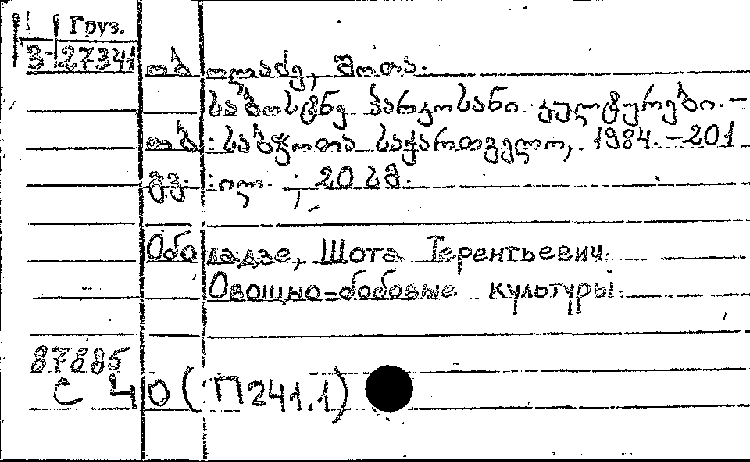 Груз.
3-27341
ობოლაძე, შოთა.
საბოსტნე პარკოსანი კულტურები. -
თბ. : საბჭოთა საქართველო, 1984. - 201
გვ. : ილ. ; 20 სმ.
Оболадзе, Шота Терентьевич.
Овощно-бобовые культуры.
87885
С 40 (П241.1)